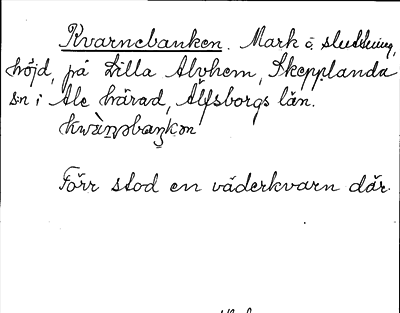 Kvarnebanken. Mark o. sluttning,
höjd, på Lilla Alvhem, Skepplanda
sn i Ale härad, Älfsborgs län.
Förr stod en väderkvarn där.